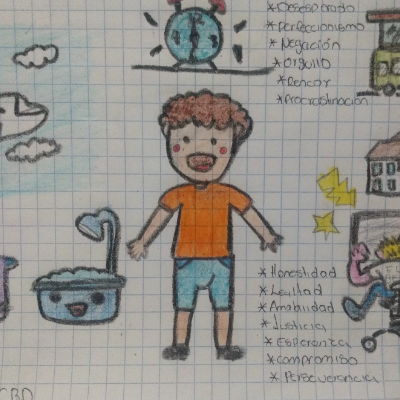 * Desesperado
* Perfeccionismo
* Negación
* Orgullo
* Rencor
* Procrastinación
* Honestidad
* Lealtad
* Amabilidad
* Justicia
* Esperanza
* Compromiso
* Perseverancia